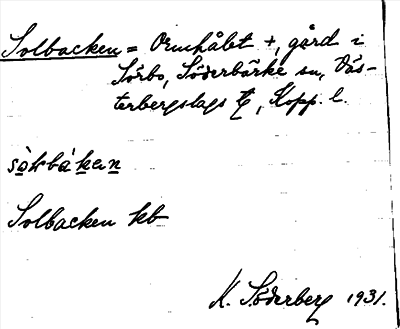 Solbacken = Ormhålet +, gård i
Sörbo, Söderbärke sn, Väs-
terbergslags tg, Kopp. l.
sòlbàkan
Solbacken kb
K. Söderberg 1931.